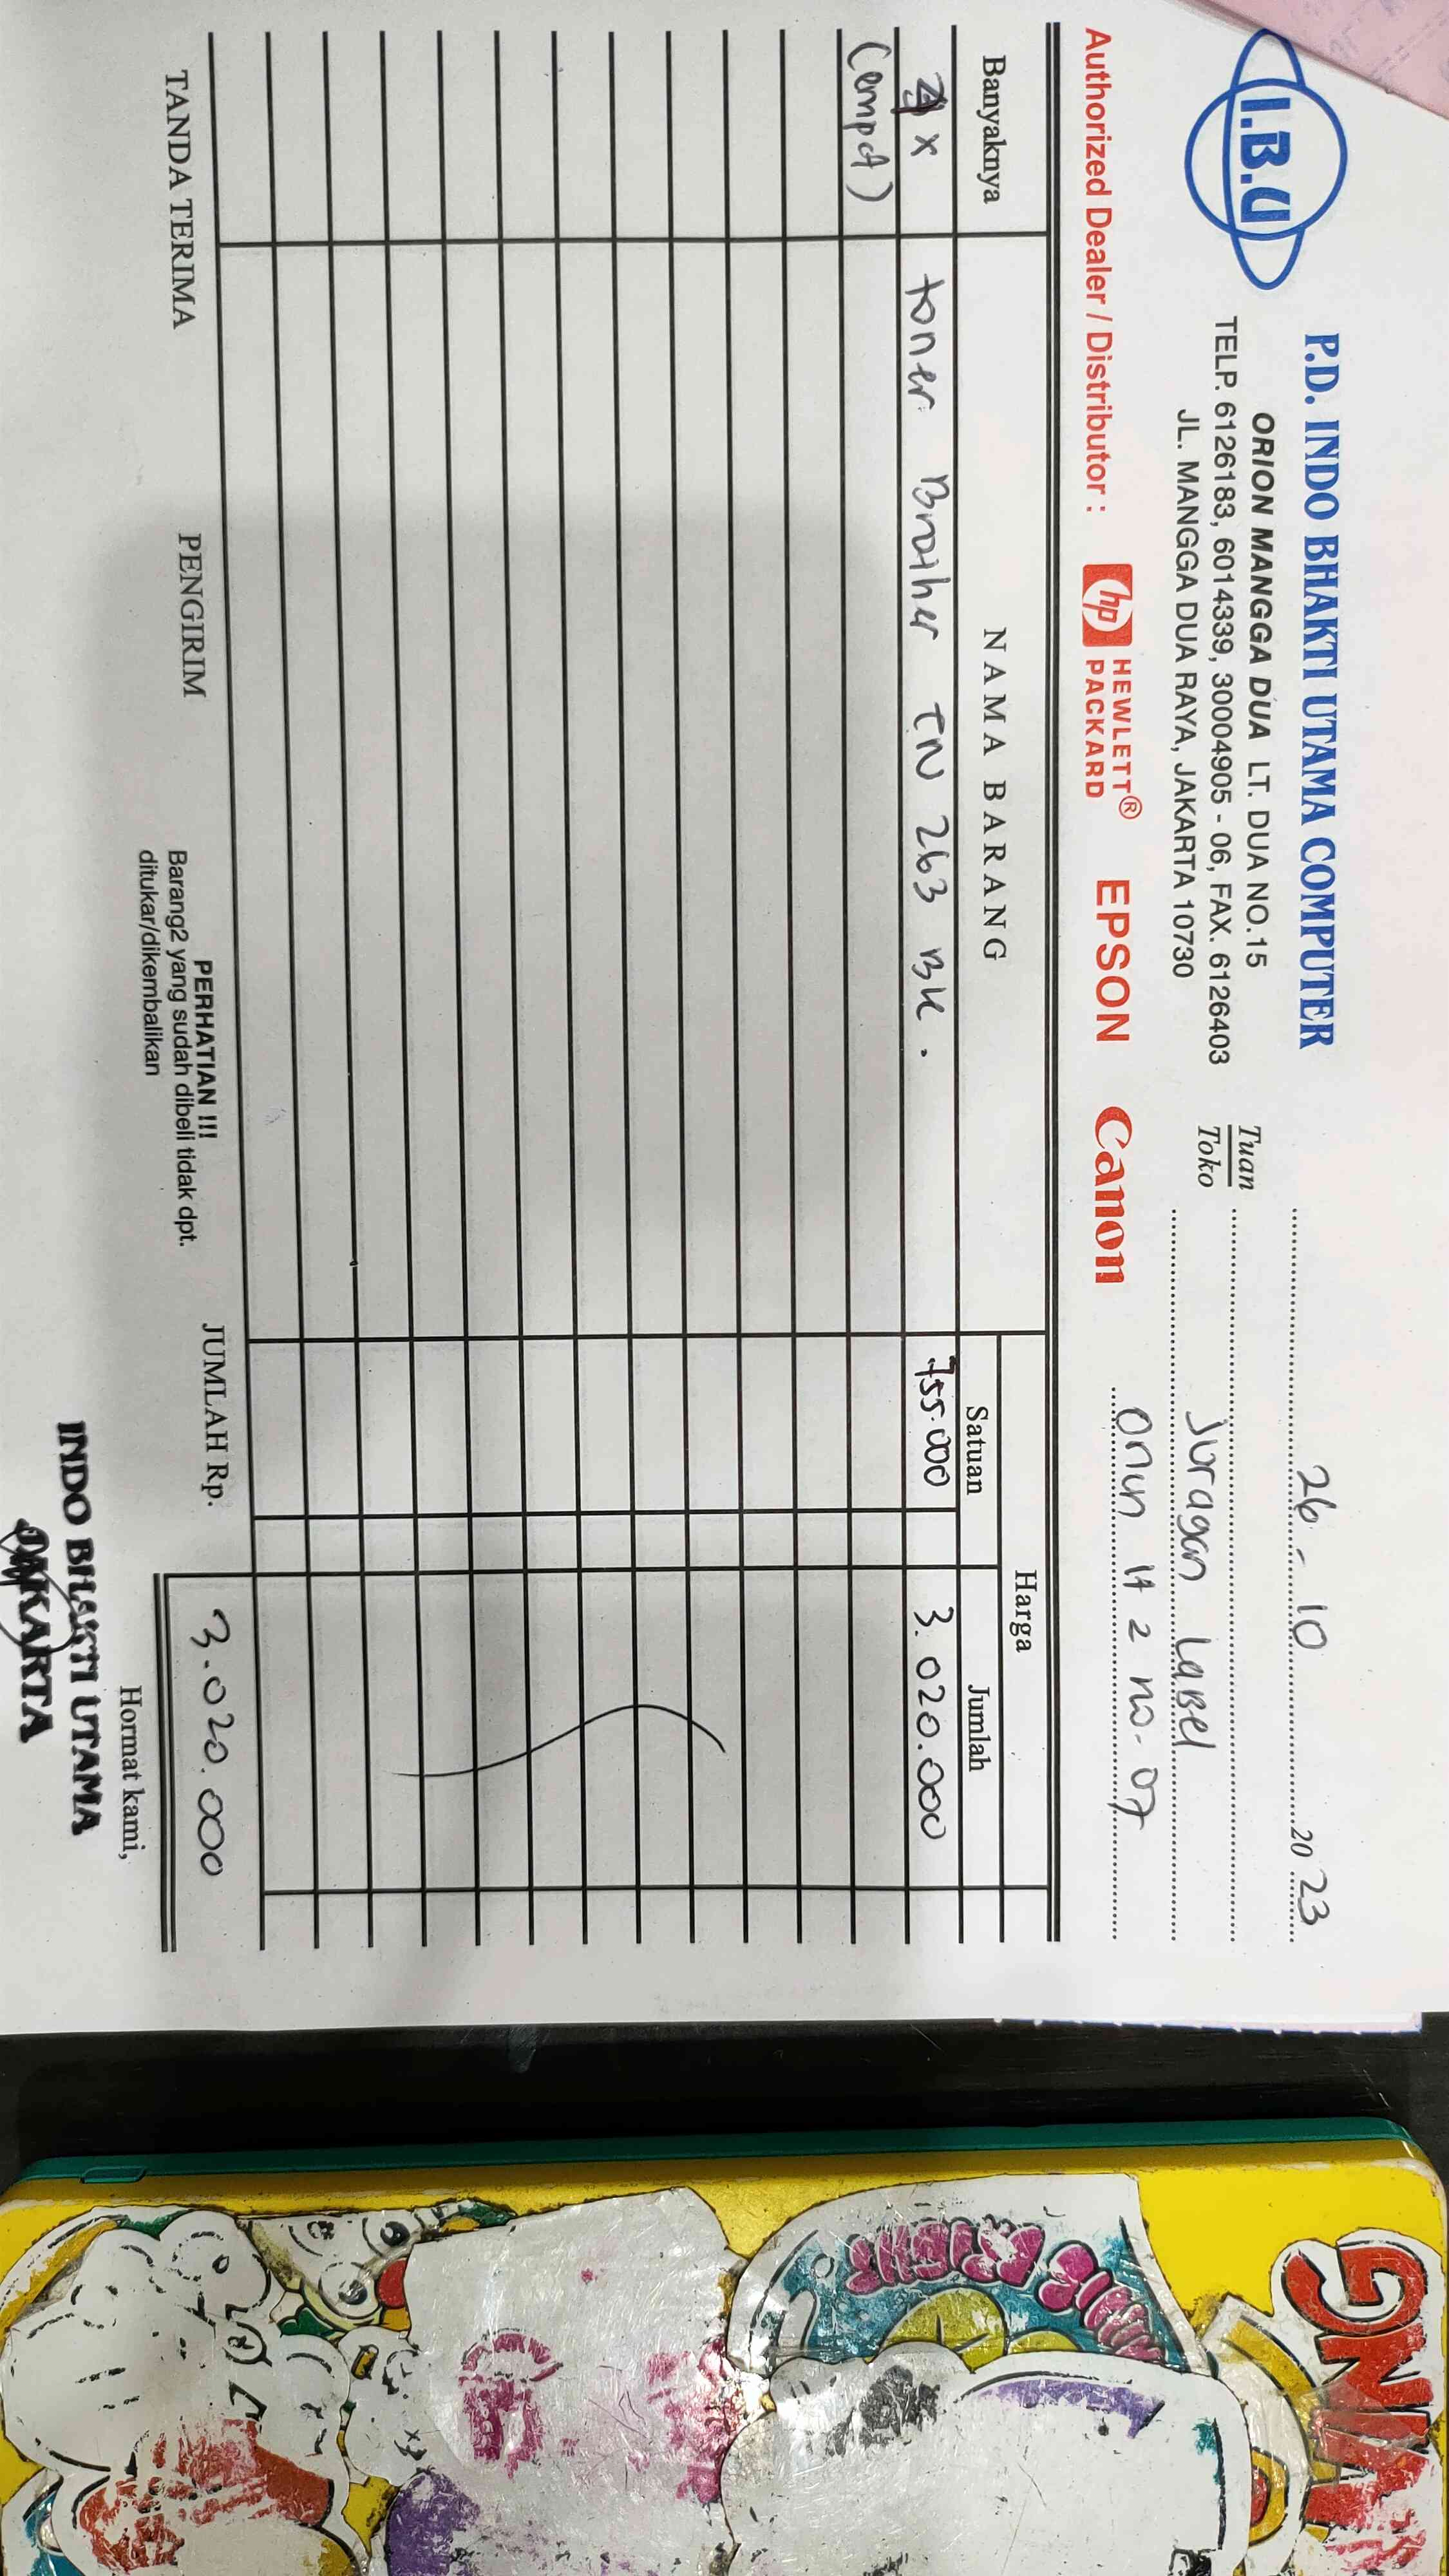 I.B.U
P.D. INDO BHAKTI UTAMA COMPUTER
ORION MANGGA DUA LT. DUA NO.15
TELP. 6126183, 6014339, 30004905 - 06, FAX. 6126403
JL. MANGGA DUA RAYA, JAKARTA 10730
Authorized Dealer / Distributor :
hp HEWLETT®
PACKARD
EPSON
Canon
26 - 10 20 23
Tuan
Toko
Juragan Label
Orion lt 2 no. 07
Banyaknya NAMA BARANG Harga
Satuan Jumlah
4 x toner Brother TN 263 BK. 755.000 3.020.000
(empat)
TANDA TERIMA
PENGIRIM
PERHATIAN !!!
Barang2 yang sudah dibeli tidak dpt.
ditukar/dikembalikan
JUMLAH Rp. 3.020.000
Hormat kami,
INDO BHAKTI UTAMA
JAKARTA